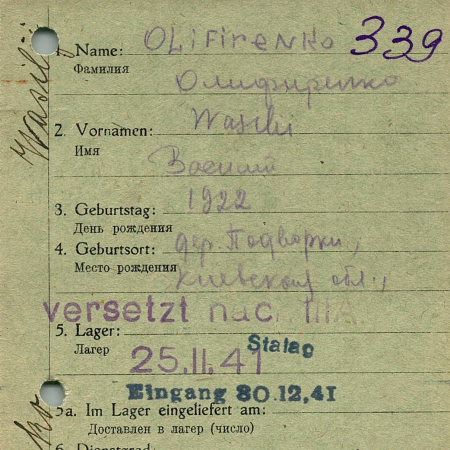 1. Name: Olifirenko 339
Фамилия Олифиренко
2. Vornamen: Wasili
Имя Василий
3. Geburtstag: 1922
День рождения
4. Geburtsort: дер. Подворки,
Место рождения Киевская обл.,
versetzt nach
5. Lager: Stalag
Лагер 25.11.41
Eingang 30.12.41
5a. Im Lager eingeliefert am:
Доставлен в лагер (число)
6. Dienstgrad:
Wasilij
ko